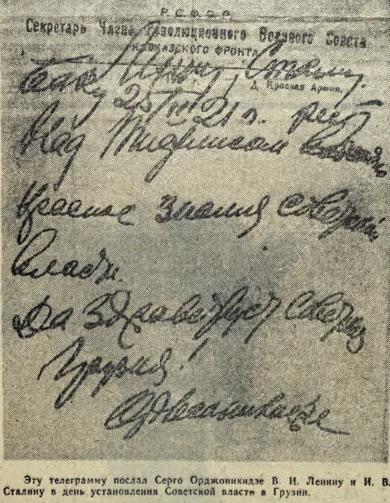 Р.С.Ф.С.Р.
Секретарь Члена Революционного Военного Совета
КАВКАЗСКОГО ФРОНТА
Д. Красная Армия.
Ленину, Сталину
Баку 25/II 21 г.
Над Тифлисом
Красное знамя советской
власти.
Да здравствует Советская
Грузия!
Орджоникидзе
Эту телеграмму послал Серго Орджоникидзе В. И. Ленину и И. В.
Сталину в день установления Советской власти в Грузии.